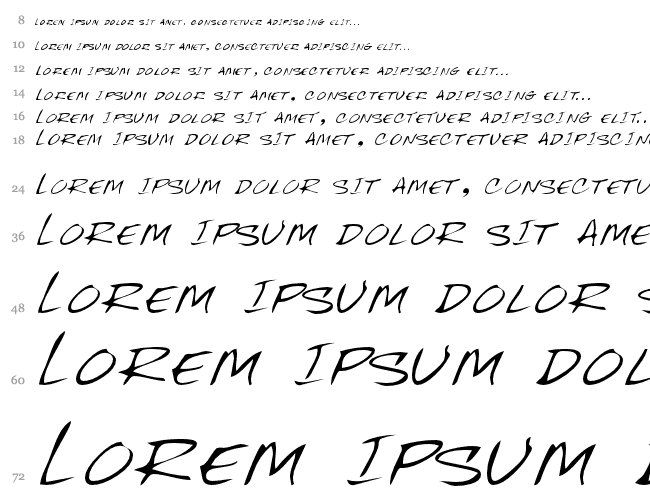 8 Lorem ipsum dolor sit amet, consectetuer adipiscing elit...
10 Lorem ipsum dolor sit amet, consectetuer adipiscing elit...
12 Lorem ipsum dolor sit amet, consectetuer adipiscing elit...
14 Lorem ipsum dolor sit amet, consectetuer adipiscing elit...
16 Lorem ipsum dolor sit amet, consectetuer adipiscing elit..
18 Lorem ipsum dolor sit amet, consectetuer adipiscin
24 Lorem ipsum dolor sit amet, consectetu
36 Lorem ipsum dolor sit ame
48 Lorem ipsum dolor s
60 Lorem ipsum dol
72 Lorem ipsum